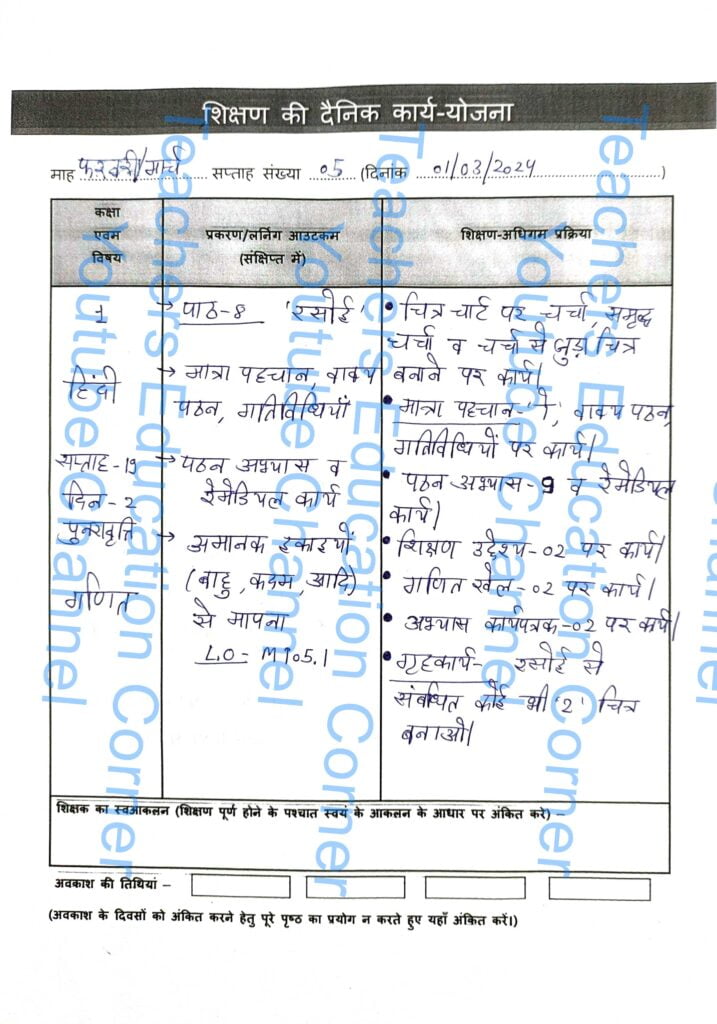 शिक्षण की दैनिक कार्य-योजना
माह फरवरी/मार्च सप्ताह संख्या 05 (दिनांक 01/03/2024)
कक्षा एवम विषय
प्रकरण/लर्निंग आउटकम (संक्षिप्त में)
शिक्षण-अधिगम प्रक्रिया
1
हिंदी
सप्ताह-19
दिन-2
पुनरावृत्ति
गणित
→ पाठ-8 'रसोई'
→ मात्रा पहचान, वाक्य
पठन, गतिविधियाँ
→ पठन अभ्यास व
रेमेडियल कार्य
→ अमानक इकाइयों
(बाहु, कदम, आदि)
से मापना
L.O- M105.1
• चित्र चार्ट पर चर्चा, समृद्ध
चर्चा व चर्चा से जुड़ा चित्र
बनाने पर कार्य।
• मात्रा पहचान-'ो', वाक्य पठन,
गतिविधियों पर कार्य।
• पठन अभ्यास-9 व रेमेडियल
कार्य।
• शिक्षण उद्देश्य-02 पर कार्य।
• गणित खेल-02 पर कार्य।
• अभ्यास कार्यपत्रक-02 पर कार्य।
• गृहकार्य- रसोई से
संबंधित कोई भी '2' चित्र
बनाओ।
शिक्षक का स्वआकलन (शिक्षण पूर्ण होने के पश्चात स्वयं के आकलन के आधार पर अंकित करे) –
अवकाश की तिथियां –
(अवकाश के दिवसों को अंकित करने हेतु पूरे पृष्ठ का प्रयोग न करते हुए यहाँ अंकित करें।)
Teachers Education Corner
Youtube Channel
Teachers Education Corner
Youtube Channel
Teachers Education Corner
Youtube Channel